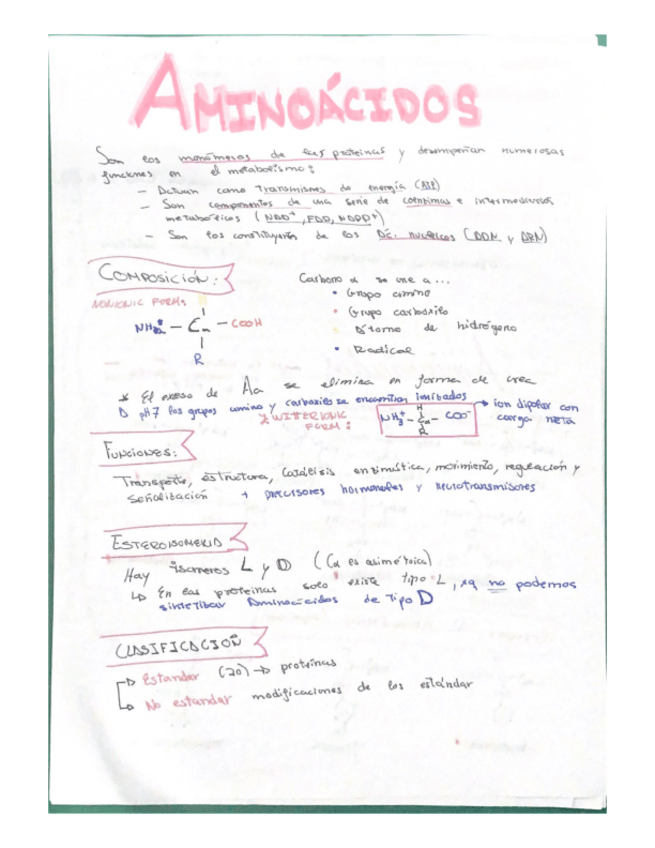 AMINOÁCIDOS
Son los monómeros de las proteínas y desempeñan numerosas
funciones en el metabolismo:
- Actúan como transmisores de energía (ATP)
- Son componentes de una serie de coenzimas e intermediarios
metabólicos (NAD+, FAD, NADP+)
- Son los constituyentes de los Ác. nucleicos (ADN y ARN)
COMPOSICIÓN:
Carbono α se une a...
• Grupo amino
• Grupo carboxilo
• Átomo de hidrógeno
• Radical
NONIONIC FORM:
NH2 - Cα - COOH
R
* El exceso de Aa se elimina en forma de urea
A pH7 los grupos amino y carboxilo se encuentran ionizados
ZWITERIONIC
FORM:
H
NH3+ - Cα - COO-
R
ion dipolar con
carga neta
FUNCIONES:
Transporte, estructura, catálisis enzimática, movimiento, regulación y
señalización + precursores hormonales y neurotransmisores
ESTEROISOMERIA
Hay isómeros L y D (Cα es asimétrica)
↳ En las proteínas solo existe tipo L, xq no podemos
sintetizar Aminoácidos de Tipo D
CLASIFICACIÓN
→ Estandar (20) → proteínas
→ No estandar modificaciones de los estándar